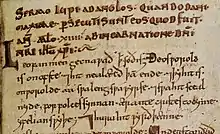 SERMO LUPI AD ANGLOS QUANDO DANI
MAXIME PERSECUTI SUNT EOS QUOD FUIT
XIIII AB INCARNATIONE DNI
NRI IHU XPI
Leofan men gecnawað ꝥ soð is ðeos worold
is on ofste ⁊ hit nealæcð þā ende. ⁊ þy hit is
on worolde aa swa leng swa wyrse. ⁊ swa hit sceal
nyde for folces synnan
yfelian swyþe. ⁊ huru hit wyrð þænne